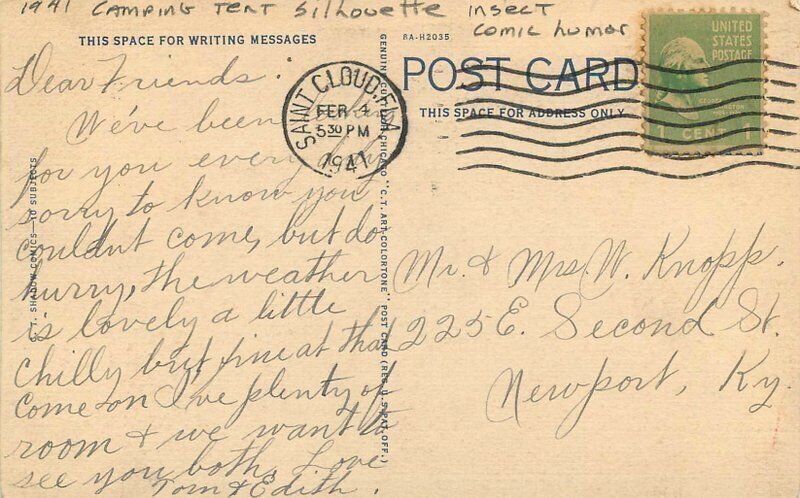 1941 CAMPING TENT Silhouette insect
comic humor
THIS SPACE FOR WRITING MESSAGES
8A-H2035
POST CARD
THIS SPACE FOR ADDRESS ONLY
UNITED
STATES
POSTAGE
1 CENT 1
SAINT CLOUD, FLA.
FEB 4
5 30 PM
1941
Dear Friends:
We've been
for you every day
sorry to know you
couldnt come, but do
hurry, the weather
is lovely a little
chilly but fine at that
come on I've plenty of
room & we want to
see you both, Love
Tom & Edith.
C.T. SHADOW COMICS—10 SUBJECTS
GENUINE CURTEICH-CHICAGO "C.T. ART-COLORTONE" POST CARD (REG. U.S. PAT. OFF.)
Mr. & Mrs W. Knopp.
225 E. Second St.
Newport, Ky.